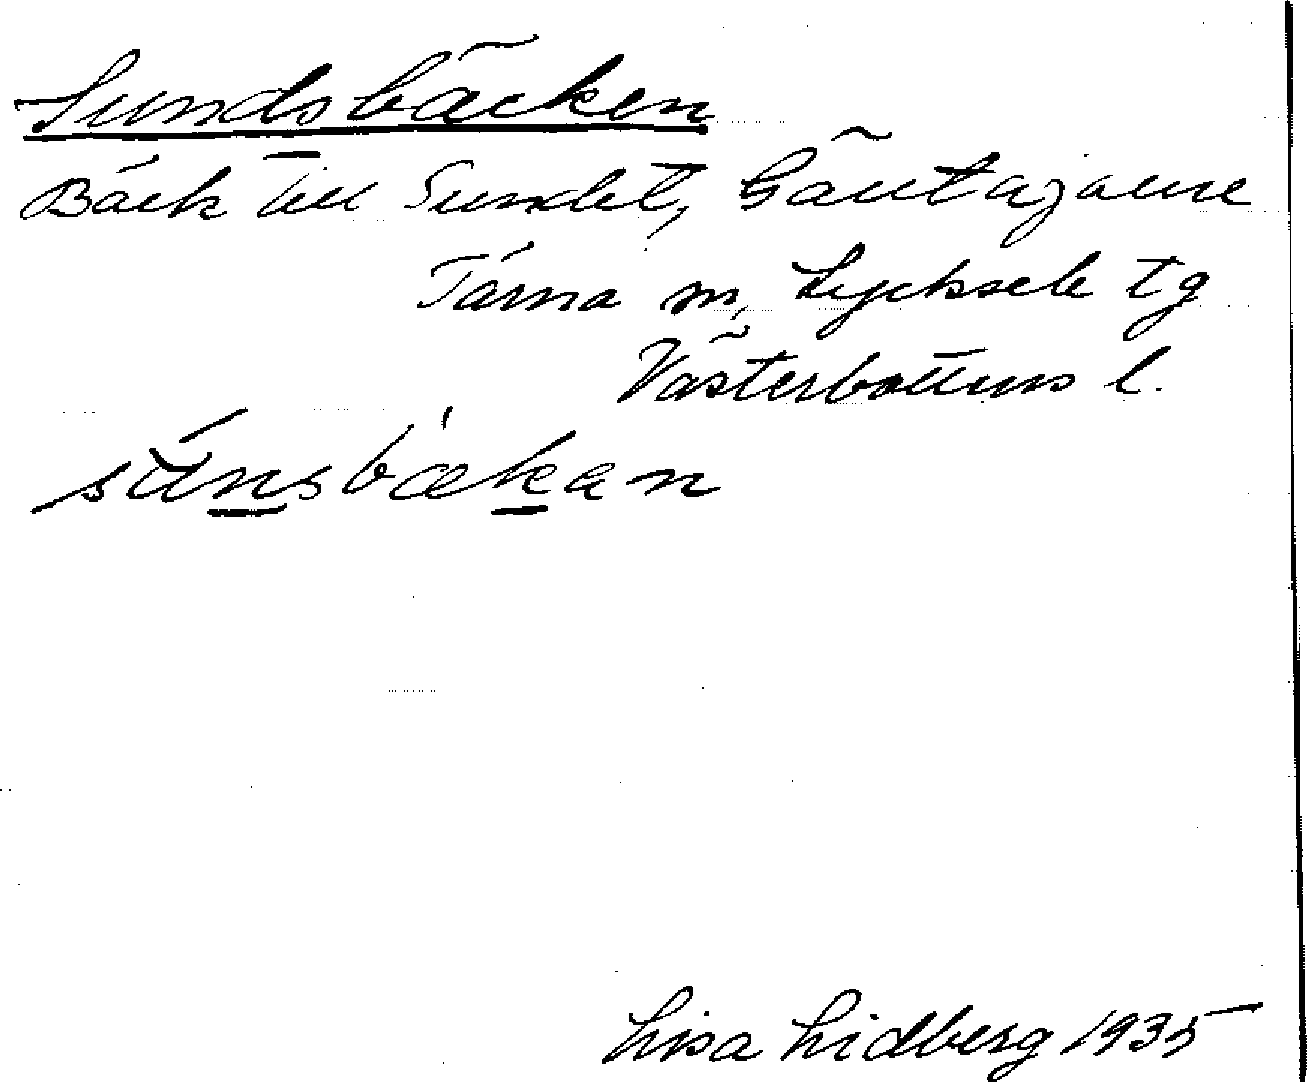 Sundsbäcken
Bäck till Sundet, Gäutajaure
Tärna sn, Lycksele tg
Västerbottens l.
súnsbækan
Lisa Lidberg 1935